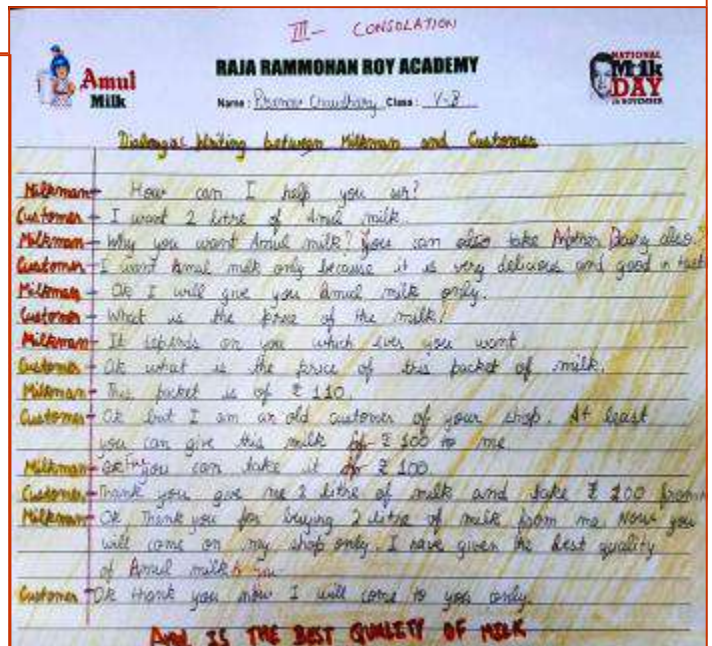 III - CONSOLATION
Amul
Milk
RAJA RAMMOHAN ROY ACADEMY
NATIONAL
Milk
DAY
26 NOVEMBER
Name: Chaudhary Class: V-B
Writing between Milkman and Customer
Milkman - How can I help you sir?
Customer - I want 2 litre of Amul milk.
Milkman - Why you want Amul milk? You can also take Mother Dairy also?
Customer - I want Amul milk only because it is very delicious and good in
Milkman - Ok I will give you Amul milk only.
Customer - What is the price of the milk?
Milkman - It depends on you which ever you want.
Customer - Ok what is the price of this packet of milk.
Milkman - This packet is of ₹ 110.
Customer - Ok but I am an old customer of your shop. At least
you can give this milk for ₹ 100 to me
Milkman - you can take it for ₹ 100.
Customer - Thank you give me 2 litre of milk and take ₹ 200 from
Milkman - Ok, Thank you for buying 2 litre of milk from me. Now you
will come on my shop only. I have given the best quality
of Amul milk to you
Customer - Ok thank you now I will come to you only.
AMUL IS THE BEST QUALITY OF MILK